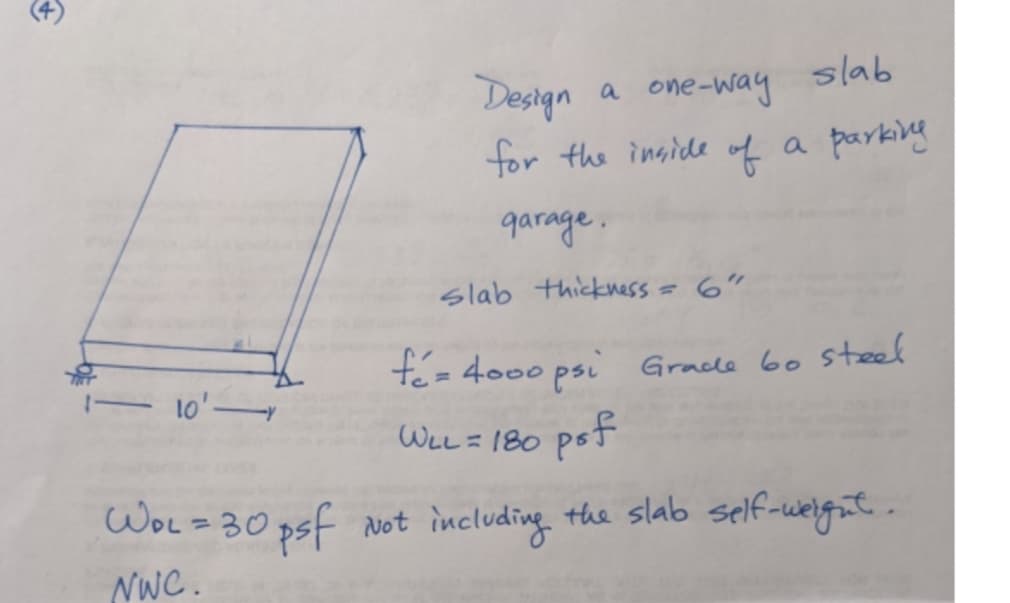 (4)
Design a one-way slab
for the inside of a parking
garage.
slab thickness = 6"
f'c = 4000 psi Grade 60 steel
10'
WLL = 180 psf
WDL = 30 psf Not including the slab self-weight.
NWC.